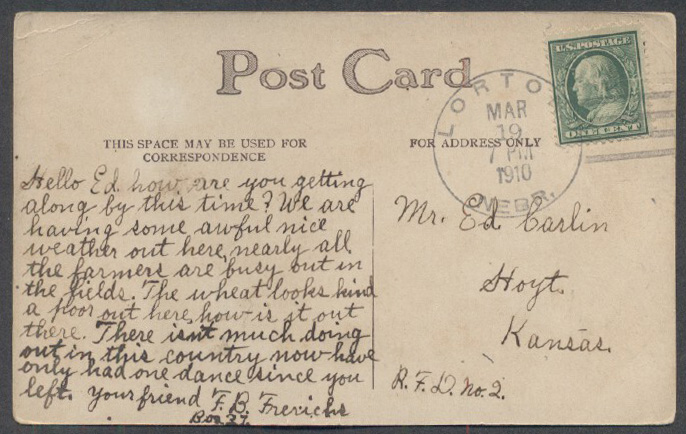 Post Card
THIS SPACE MAY BE USED FOR
CORRESPONDENCE
FOR ADDRESS ONLY
U.S. POSTAGE
ONE CENT
LORTON
MAR
19
7 PM
1910
NEBR.
Hello Ed. how are you getting
along by this time? We are
having some awful nice
weather out here nearly all
the farmers are busy out in
the fields. The wheat looks kind
a poor out here how is it out
there. There isn't much doing
out in this country now have
only had one dance since you
left. Your friend F. B. Frerichs
Box 27.
Mr. Ed Carlin
Hoyt.
Kansas.
R.F.D. No. 2.